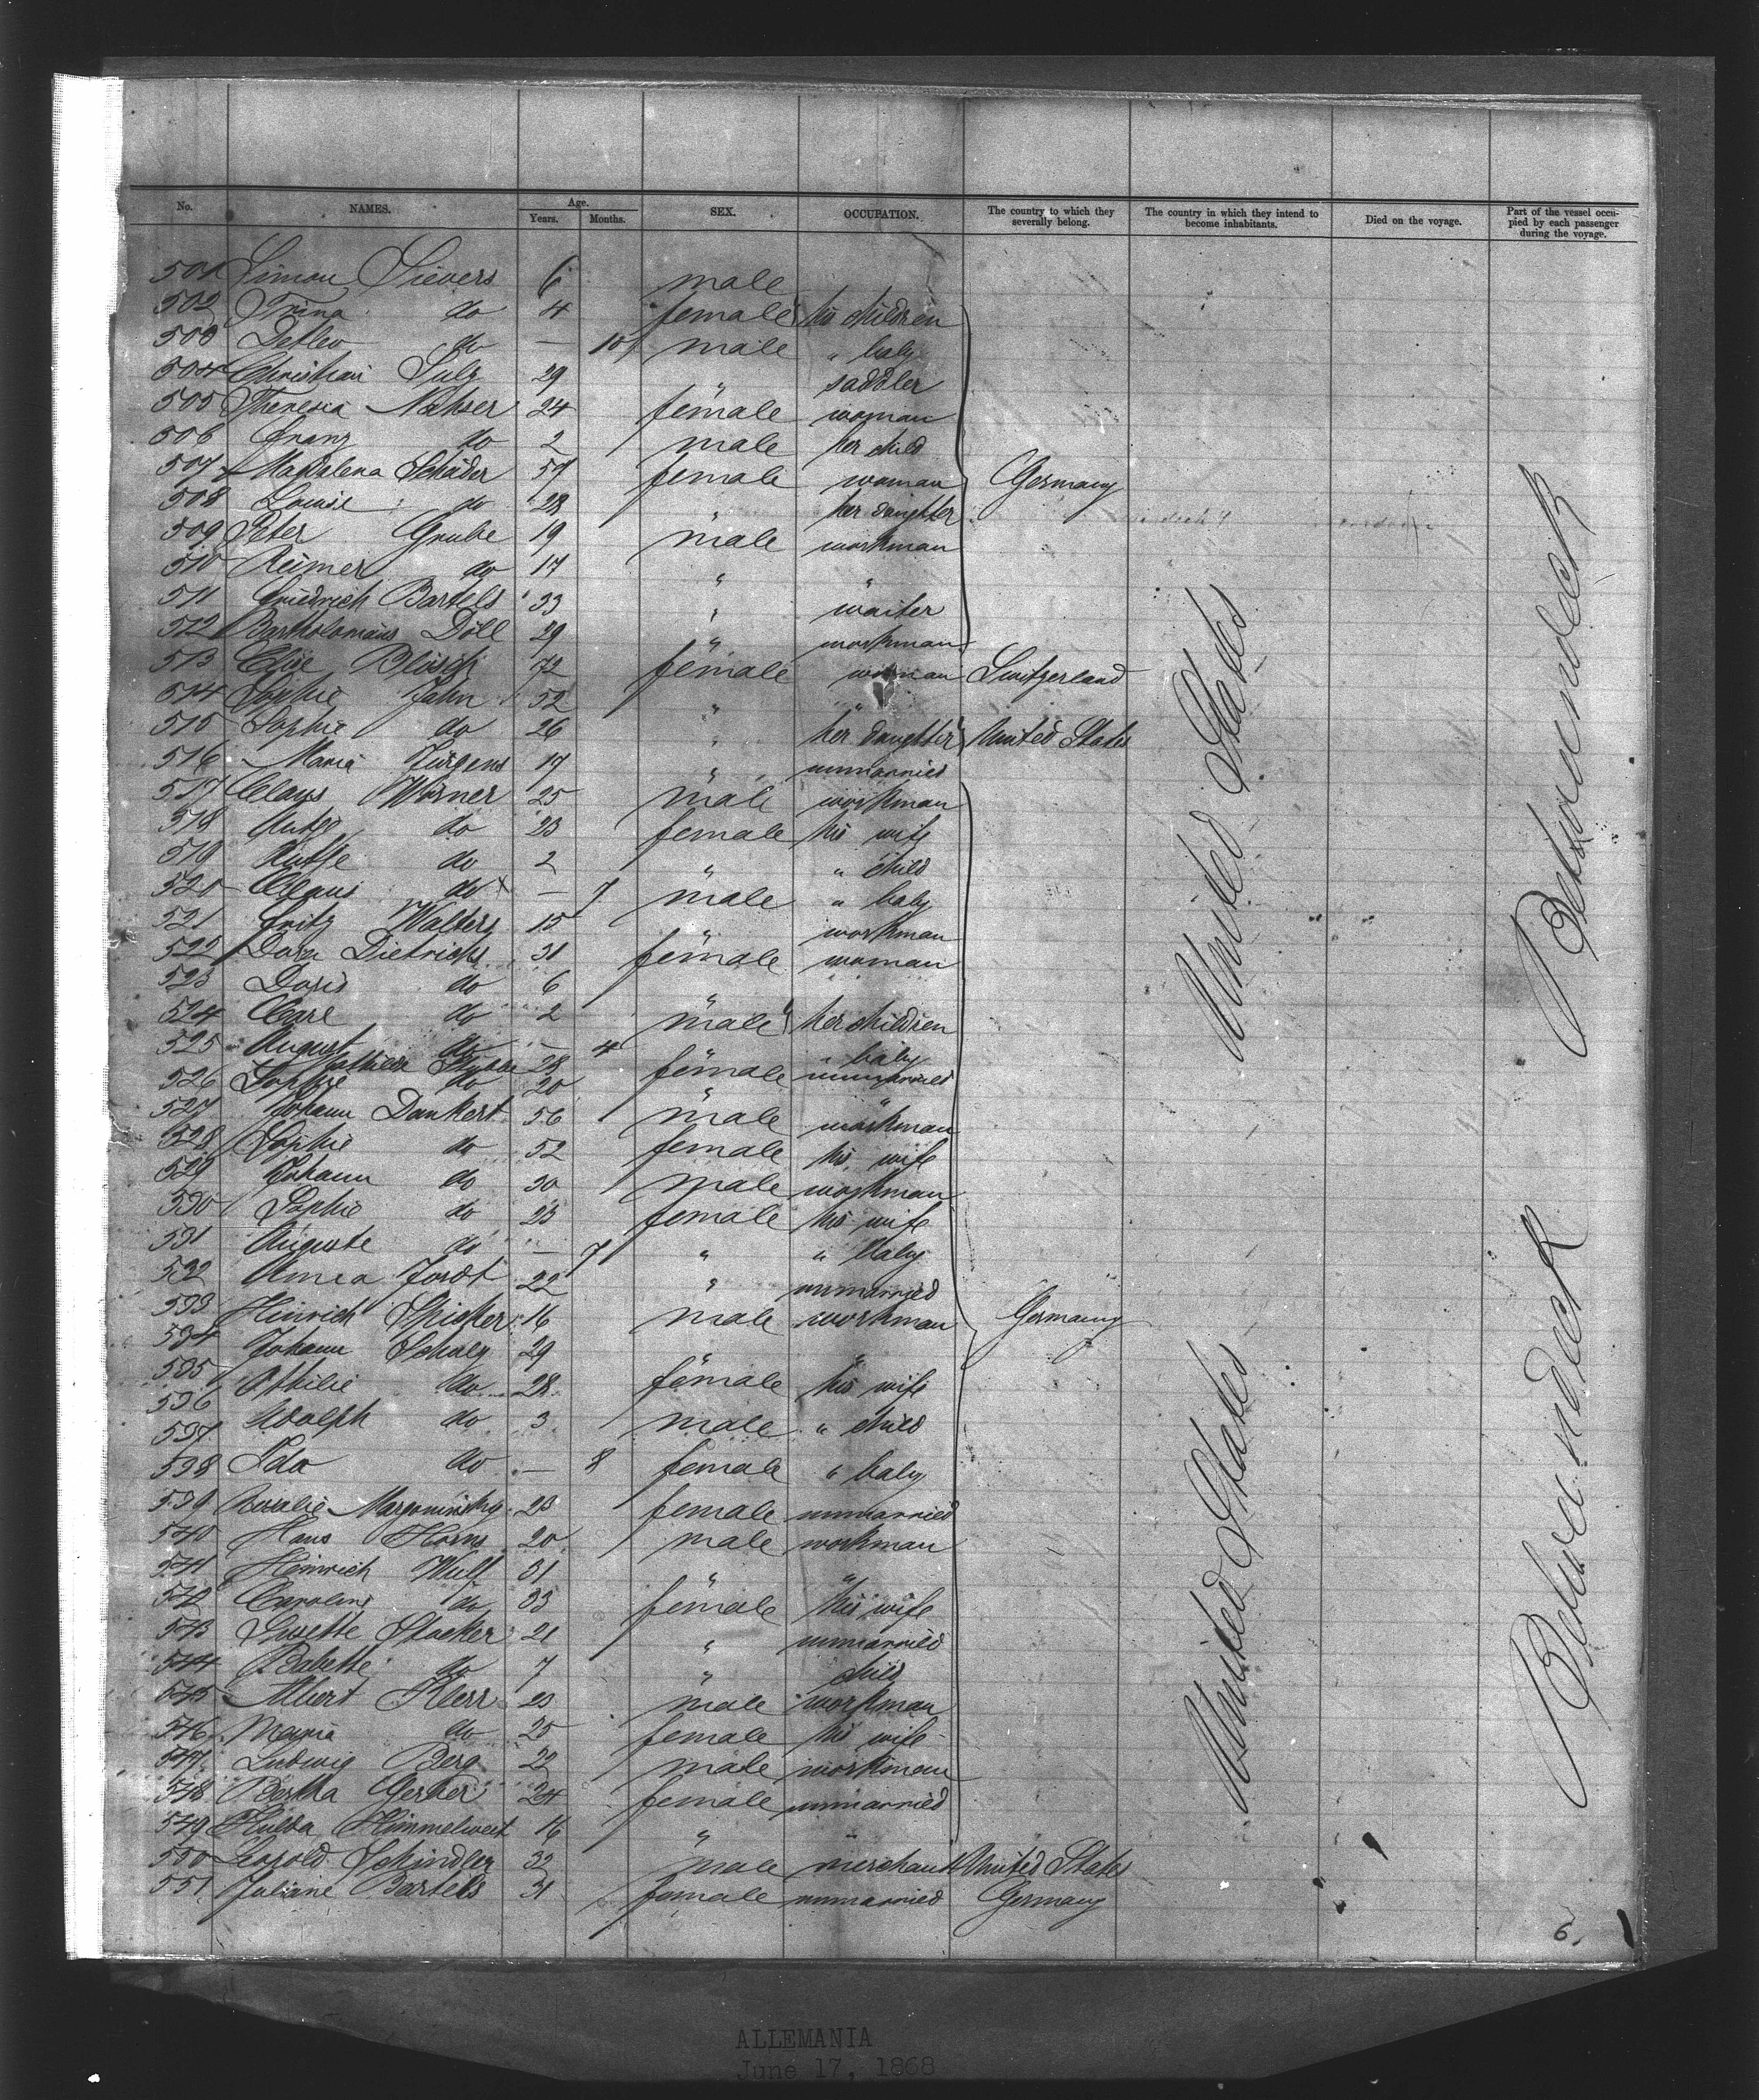 No. NAMES. Age. Years. Months. SEX. OCCUPATION. The country to which they severally belong. The country in which they intend to become inhabitants. Died on the voyage. Part of the vessel occupied by each passenger during the voyage.
501 Simon Sievers 6 male
502 Trina do 4 female his children
503 Detlev do — 10 male " baby
504 Christian Sulz 29 " saddler
505 Theresia 24 female woman
506 Franz do 2 male her child
507 Magdalena Schäder 57 female woman Germany
508 Louise do 28 " her daughter
509 Peter Grube 19 male workman
510 Reimer do 17 " "
511 Friedrich Bartels 33 " waiter
512 Bartholomäus Döll 29 " workman
513 Elise Blösch 72 female woman Switzerland
514 Sophie Jahn 52 " "
515 Sophie do 26 " her daughter United States
516 Maria Jürgens 17 " unmarried
517 Claus Wörner 25 male workman
518 do 23 female his wife
519 do 2 " " child
520 Claus do — 7 male " baby
521 Fritz Walters 15 " workman
522 Dora Dietrichs 31 female woman
523 Doris do 6 "
524 Carl do 2 male her children
525 August do — 4 " " baby
Mathilde 28 female unmarried
526 Sophie do 20 " "
527 Johann Dankert 56 male workman
528 Sophie do 52 female his wife
529 Johann do 30 male workman
530 Sophie do 23 female his wife
531 Auguste do — 7 " " baby
532 Anna Jordt 22 " unmarried
533 Hinrich Spicker 16 male workman Germany
534 Johann Schulz 29 " "
535 Ottilie do 28 female his wife
536 Adolph do 3 male " child
537
538 Ida do — 8 female " baby
539 Rosalie Margoninsky 23 female unmarried
540 Hans Horns 20 male workman
541 Heinrich Wulf 31 " "
542 Caroline do 33 female his wife
543 Susette Stocker 21 " unmarried
544 Babette do 7 " child
545 Albert Klerr 23 male workman
546 Maria do 25 female his wife
547 Ludwig Berg 22 male workman
548 Bertha Gerber 24 female unmarried
549 Hulda Himmelweit 16 " "
550 Leopold Schindler 32 male merchant United States
551 Juliane Bartels 31 female unmarried Germany
United States
United States
Between deck
Between deck
6.
ALLEMANIA
June 17, 1868